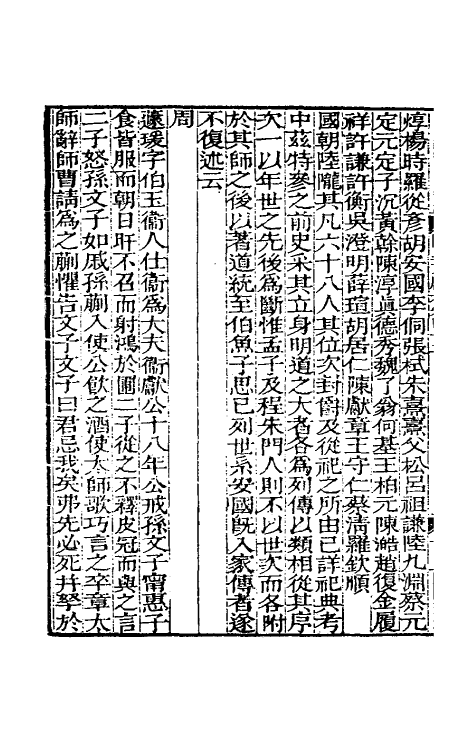 焞楊時羅從彥胡安國李侗張栻朱熹熹父松呂祖謙陸九淵蔡元
定元定子沉黃榦陳淳眞德秀魏了翁何基王柏元陳澔趙復金履
祥許謙許衡吳澄明薛瑄胡居仁陳獻章王守仁蔡淸羅欽順
國朝陸隴其凡六十八人其位次封爵及從祀之所由已詳祀典考
中茲特參之前史采其立身明道之大者各為列傳以類相從其序
次一以年世之先後為斷惟孟子及程朱門人則不以世次而各附
於其師之後以著道統至伯魚子思已列世系安國旣入家傳者遂
不復述云
周
蘧瑗字伯玉衞人仕衞為大夫衞獻公十八年公戒孫文子甯惠子
食皆服而朝日旰不召而射鴻於囿二子從之不釋皮冠而與之言
二子怒孫文子如戚孫蒯入使公飮之酒使太師歌巧言之卒章太
師辭師曹請為之蒯懼告文子文子曰君忌我矣弗先必死幷孥於